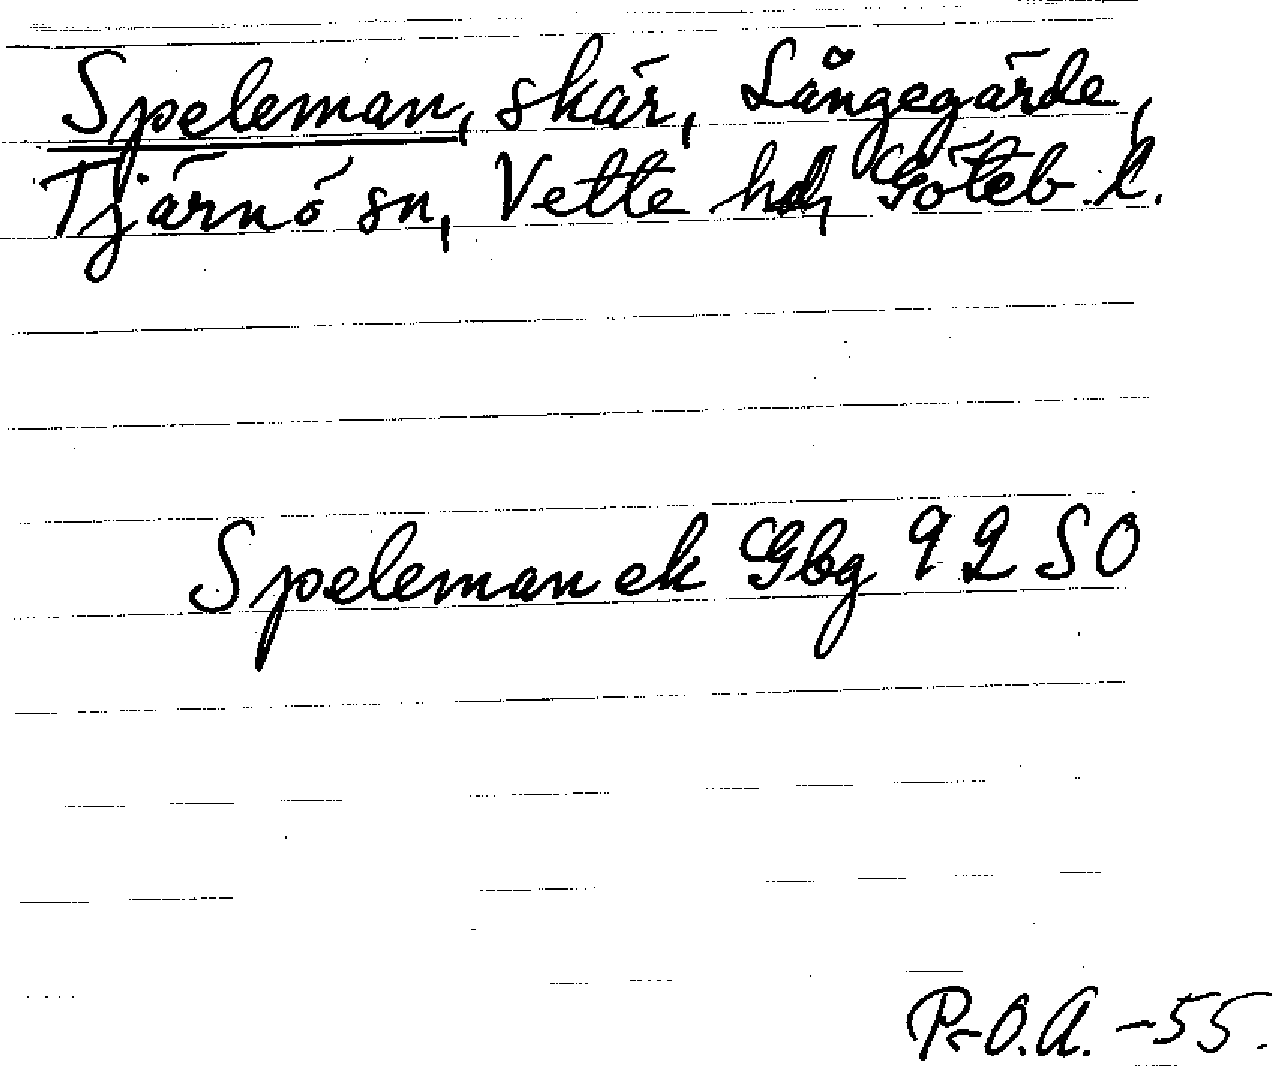 Speleman, skär, Långegärde,
Tjärnö sn, Vette hd, Göteb. l.
Speleman ek Gbg 9250
P-O.A. -55.